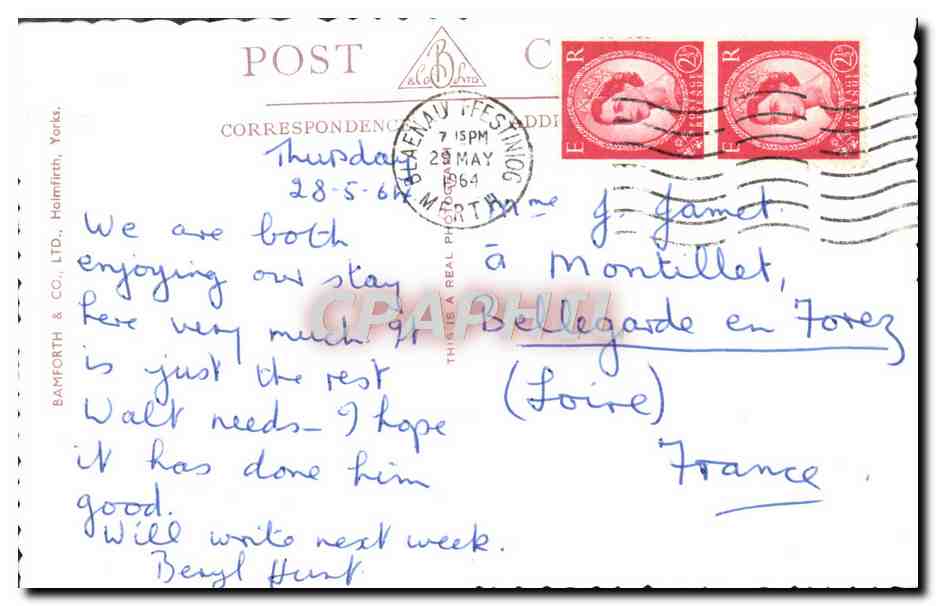 POST C
B
& Co Ltd
CORRESPONDENCE ADD
BLAENAU FFESTINIOG
7 15PM
29 MAY
1964
MERTH
E R 2½ POSTAGE REVENUE
E R 2½ POSTAGE REVENUE
BAMFORTH & CO., LTD., Holmfirth, Yorks.
THIS IS A REAL PHOTOGRAPH
Thursday
28-5-64
We are both
enjoying our stay
here very much It
is just the rest
Walt needs - I hope
it has done him
good.
Will write next week.
Beryl Hunt
Mme J. Jamet.
à Montillet,
Bellegarde en Forez
(Loire)
France.
CPAPHIL